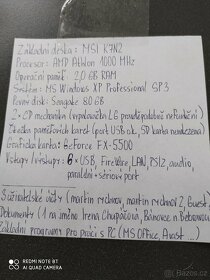 Základní deska: MSI K7N2
Procesor: AMD Athlon 1000 MHz
Operační paměť: 2,0 GB RAM
Systém: MS Windows XP Professional SP3
Pevný disk: Seagate 80 GB
2x CD mechanika (vypalovačka LG pravděpodobně nefunkční)
Čtečka paměťových karet (port USB ok, SD karta
Grafická karta: GeForce FX-5500
Vstupy/výstupy: 6x USB, FireWire, LAN, PS/2, audio,
paralelní + sériový port
3 uživatelské účty (martin, martin 2, Guest)
Dokumenty (1 na jméno Irena
Základní programy pro práci s PC (MS Office, Avast ...)
REDMI NOTE 8T
AI QUAD CAMERA